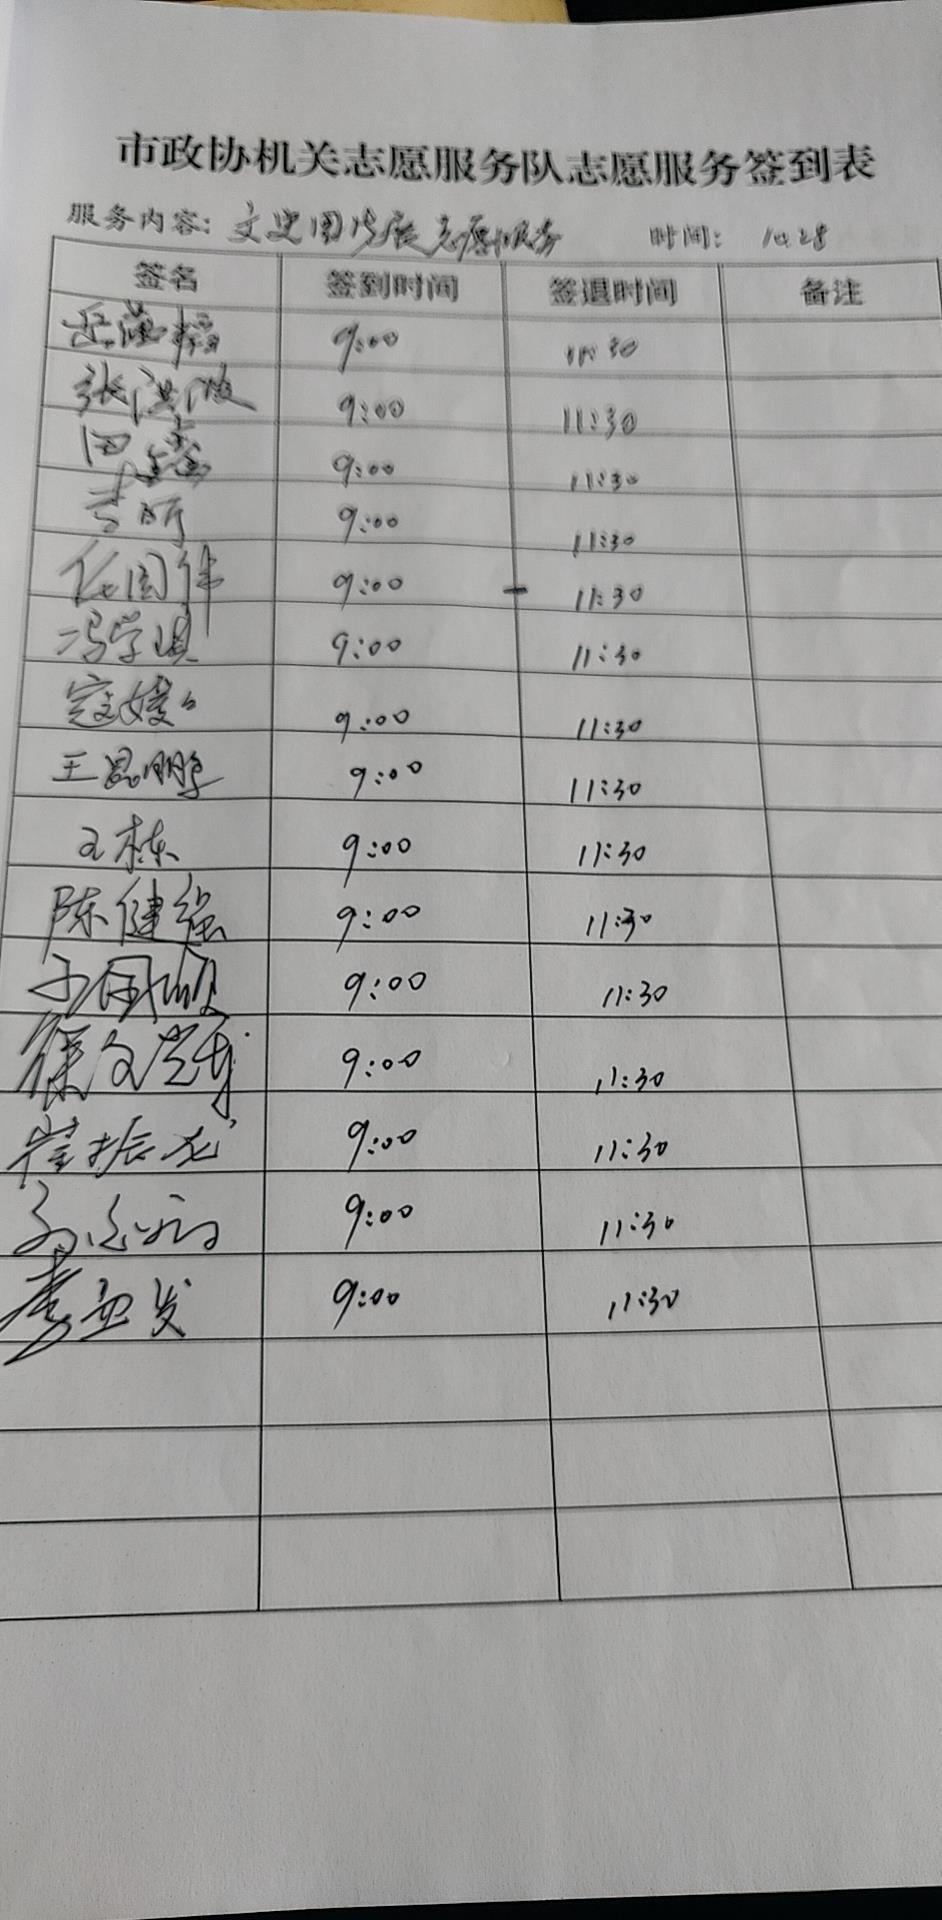 市政协机关志愿服务队志愿服务签到表
服务内容: 文史图片展志愿服务 时间: 10.28
签名 签到时间 签退时间 备注
9:00 11:30
张洪波 9:00 11:30
田鑫 9:00 11:30
9:00 11:30
任国伟 9:00 11:30
冯学 9:00 11:30
寇媛媛 9:00 11:30
王昆鹏 9:00 11:30
王栋 9:00 11:30
陈健强 9:00 11:30
9:00 11:30
9:00 11:30
崔振龙 9:00 11:30
9:00 11:30
9:00 11:30